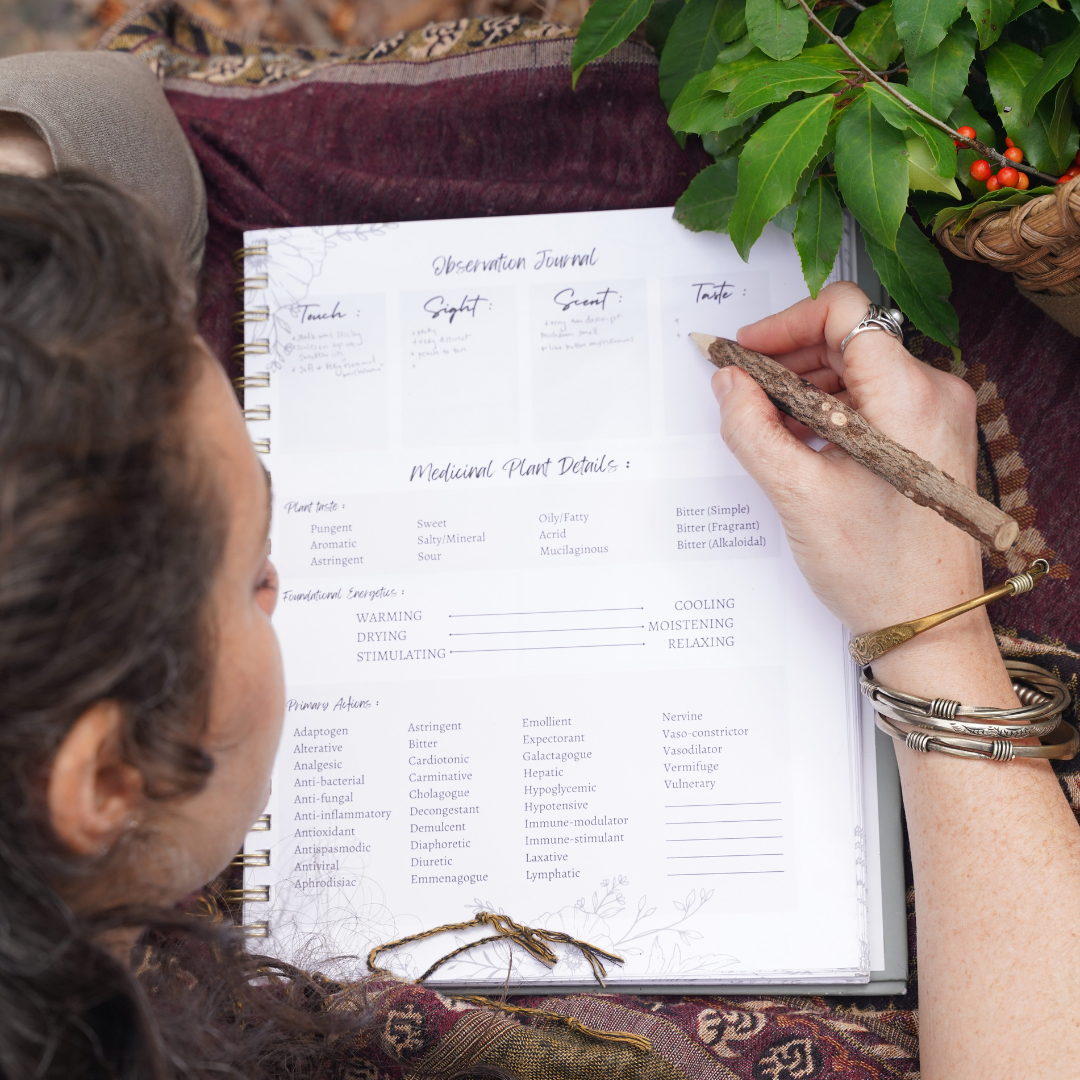 Observation Journal
Touch :
Sight :
Scent :
Taste :
Medicinal Plant Details :
Plant taste :
Pungent
Aromatic
Astringent
Sweet
Salty/Mineral
Sour
Oily/Fatty
Acrid
Mucilaginous
Bitter (Simple)
Bitter (Fragrant)
Bitter (Alkaloidal)
Foundational Energetics :
WARMING COOLING
DRYING MOISTENING
STIMULATING RELAXING
Primary Actions :
Adaptogen
Alterative
Analgesic
Anti-bacterial
Anti-fungal
Anti-inflammatory
Antioxidant
Antispasmodic
Antiviral
Aphrodisiac
Astringent
Bitter
Cardiotonic
Carminative
Cholagogue
Decongestant
Demulcent
Diaphoretic
Diuretic
Emmenagogue
Emollient
Expectorant
Galactagogue
Hepatic
Hypoglycemic
Hypotensive
Immune-modulator
Immune-stimulant
Laxative
Lymphatic
Nervine
Vaso-constrictor
Vasodilator
Vermifuge
Vulnerary